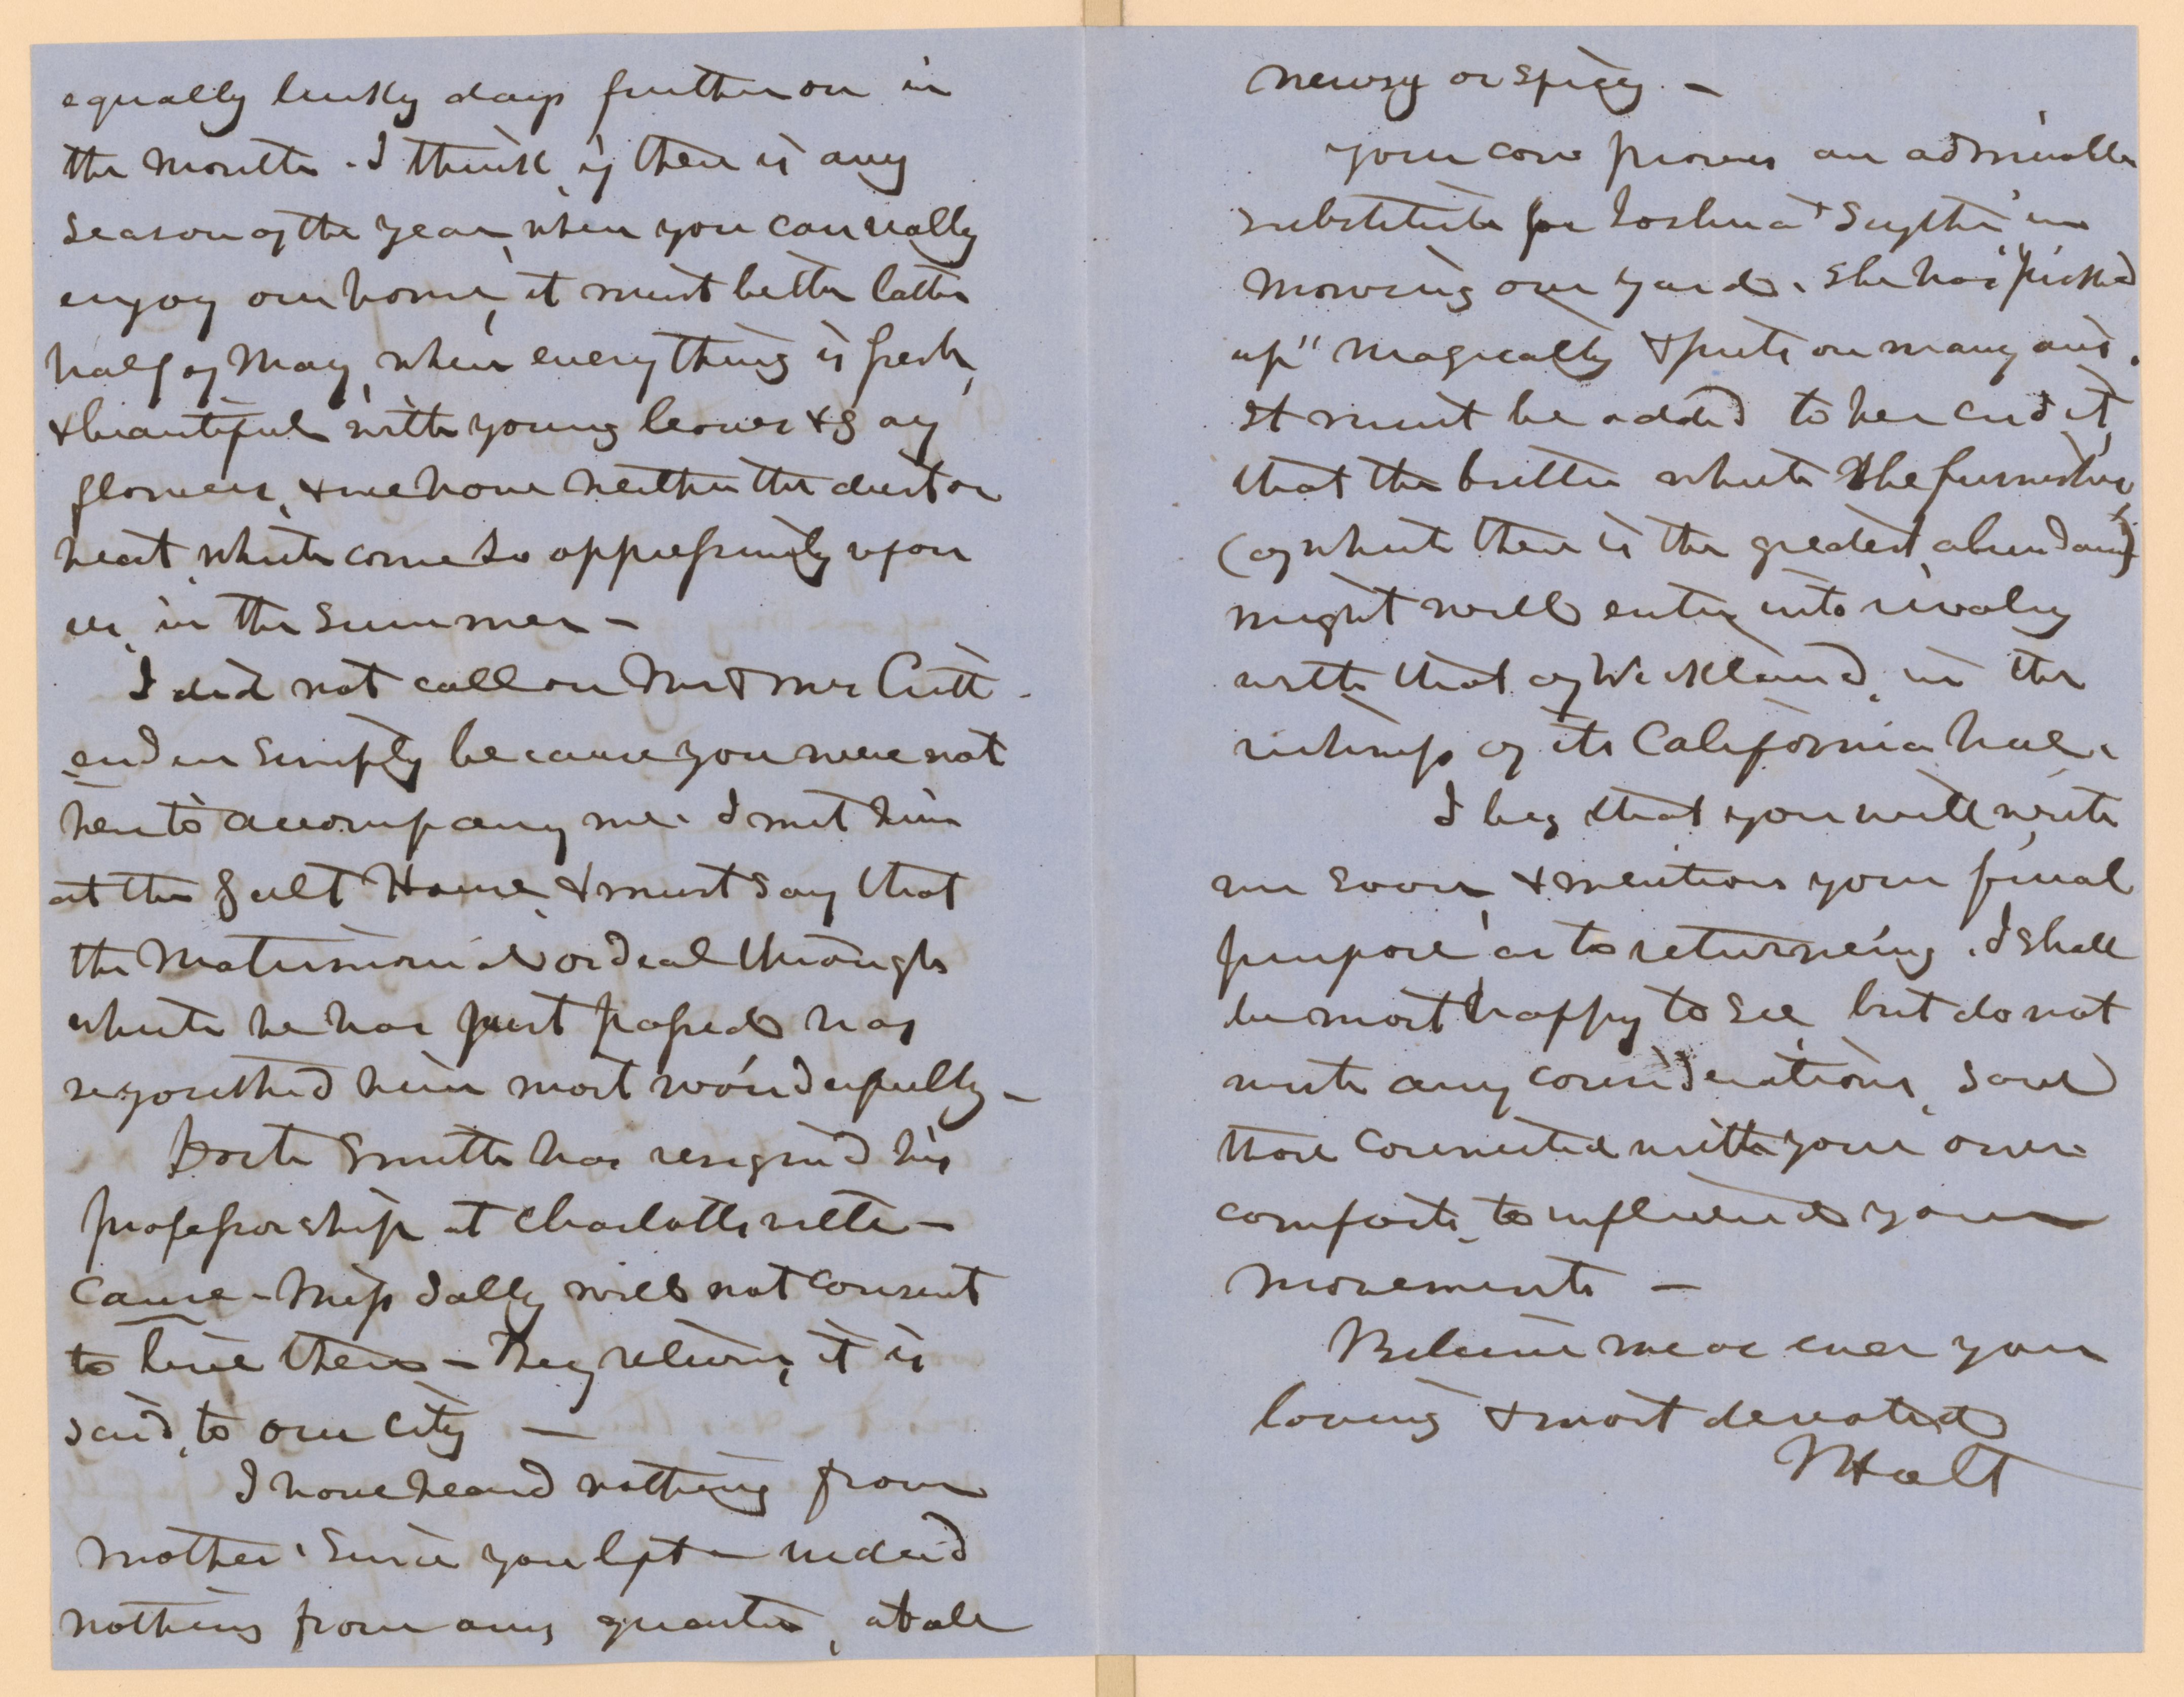 equally lucky days further on in
the month. I think, if there is any
season of the year, when you can really
enjoy our home, it must be the latter
half of May, when everything is fresh,
& beautiful with young leaves & gay
flowers, & we have neither the dust or
heat, which come so oppressively upon
us, in the summer –
I did not call on Mr & Mrs Critt
enden simply because you were not
here to accompany me. I met him
at the Galt House, & must say that
the matrimonial ordeal through
which he has just passed has
reyouthed him most wonderfully –
Doctr Smith has resigned his
professorship at Charlottesville –
Cause – Miss Sally will not consent
to live there – They return, it is
said, to our city –
I have heard nothing from
mother since you left – indeed
nothing from any quarter, at all
newsy or spicy. –
Your cow proves an admirable
substitute for Joshua's scythe in
mowing our yard. She has "picked
up" magically & puts on many airs.
It must be added to her credit,
that the butter which she furnishes,
(of which there is the greatest abundance)
might well enter into rivalry
with that of Wickland, in the
richness of its California hue.
I beg that you will write
me soon, & mention your final
purpose as to returning. I shall
be most happy to see, but do not
wish any considerations, save
those connected with your own
comfort, to influence your
movements –
Believe me as ever your
loving & most devoted
Holt